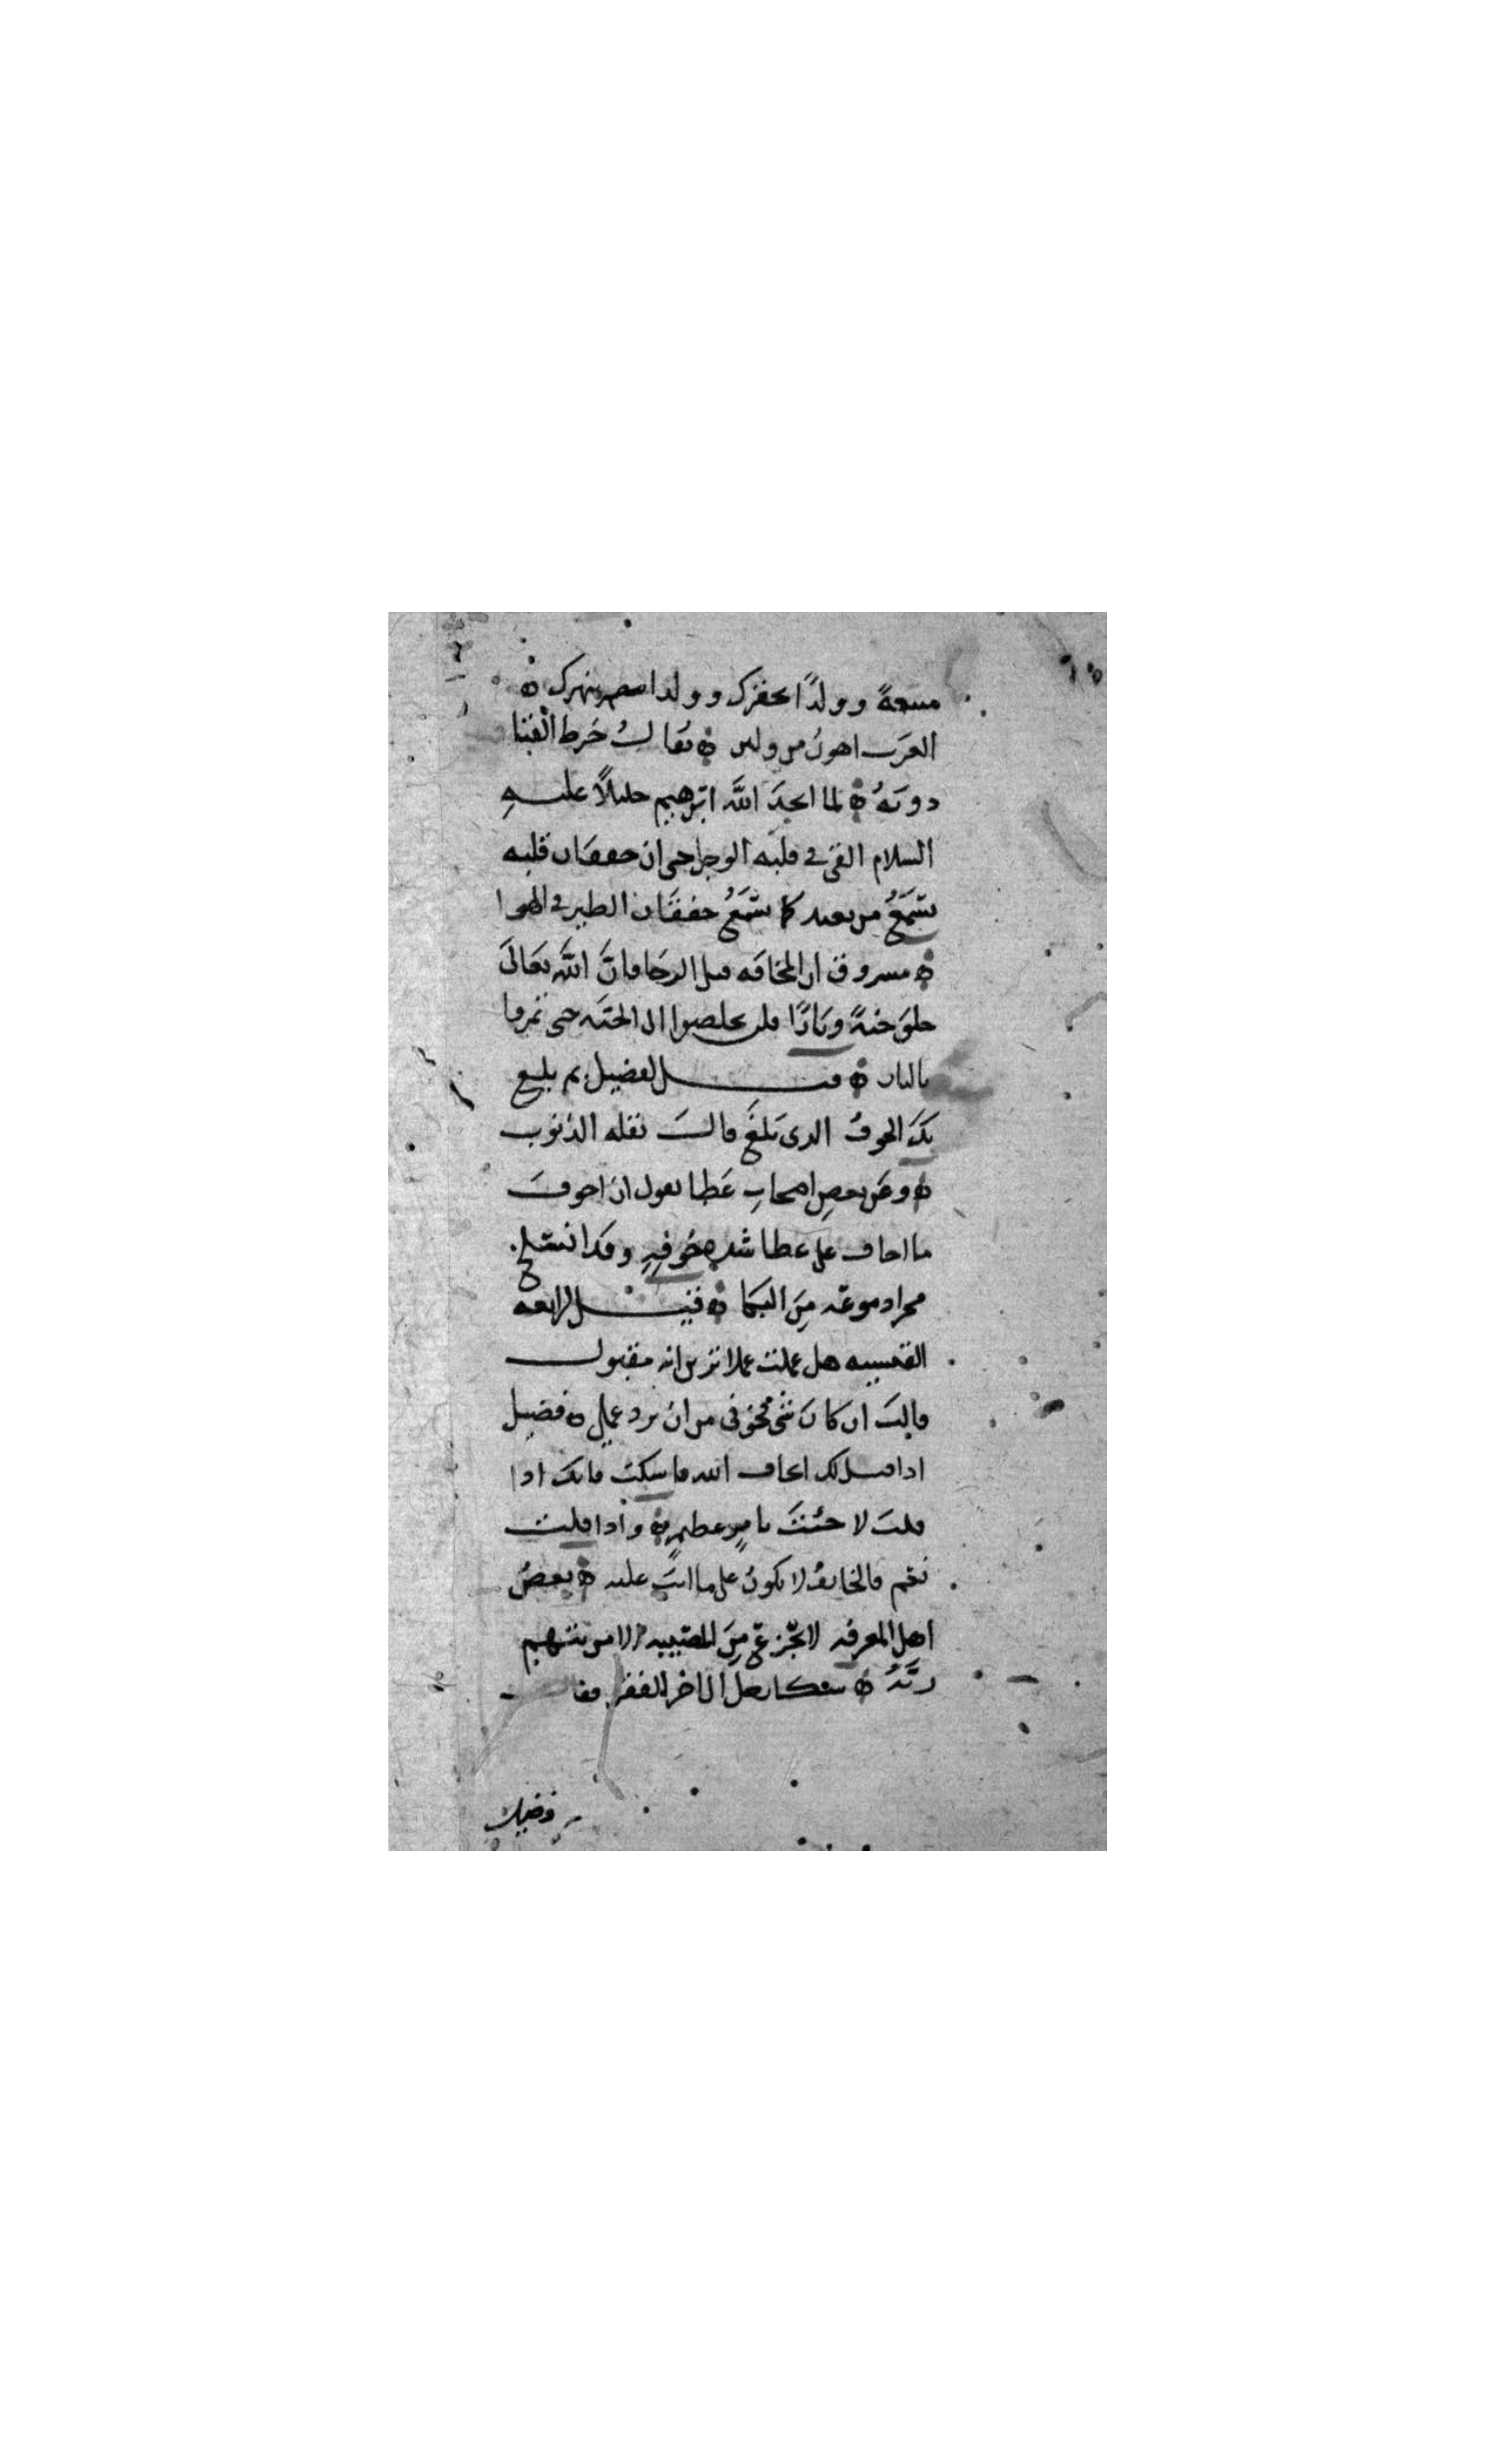 وولدًا يحقرك وولدا ينهرك ه
العرب اهون من وليس ه يقال خرط القتا
دونه ه لما اتخذ الله ابرهيم خليلاً عليه
السلام القى في قلبه الوجل حتى ان خفقان قلبه
يسمع من بعيد كما يسمع خفقان الطير في الهوا
ه مسروق ان المخافه قبل الرجا فان الله تعالى
خلق جنةً ونارًا فلن تخلصوا الى الجنه حتى تمروا
بالنار ه قيل لفضيل بم بلغ
بك الخوف الذى بلغ قال بقله الذنوب
ه وعن بعض اصحاب عطا يقول ان اخوف
ما اخاف على عطا شده خوفه وقد انسلخ
مجرا دموعه من البكا ه قيل لرابعه
القيسيه هل عملت عملا ترين انه مقبول
قالت ان كان شى فخوفى من ان يرد عملى ه فضيل
اذا قيل لك اتخاف الله فاسكت فانك اذا
قلت لا جئت بامرٍ عظيمٍ ه واذا قلت
نعم فالخايف لا يكون على ما انت عليه ه بعض
اهل المعرفه لا تجزع من المصيبه الا من يتهم
ربه ه شكا رجل الى اخر الفقر فقال
فضيل